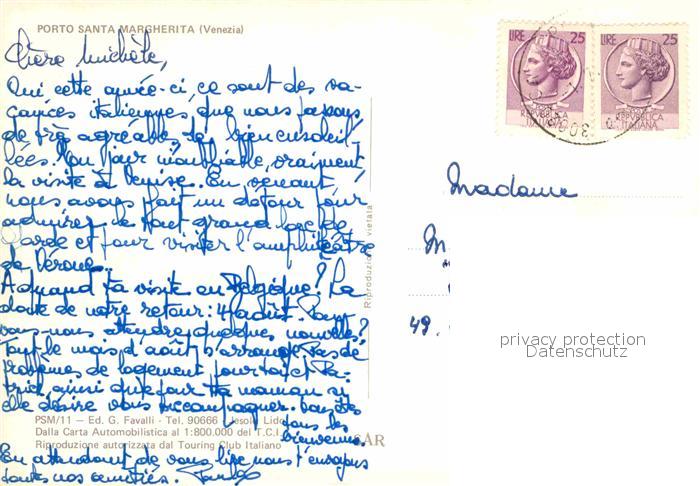 PORTO SANTA MARGHERITA (Venezia)
Chère Michèle,
Oui cette année-ci, ce sont des va-
cances italiennes que nous passons
de très agréables, bien ensoleil-
lées. Un jour inoubliable, vraiment,
la visite à Venise. En venant,
nous avons fait un détour pour
admirer le tout grand lac de
Garde et pour visiter l'amphithéâtre
de Vérone.
A quand ta visite en Belgique? La
date de notre retour: 4 août.
vous-nous attendre quelques nouvelles?
Tout le mois d'août s'arrange. Pas de
problèmes de logement pour toi et Pa-
trick, ainsi que pour ta maman si
elle désire vous accompagner. Vous êtes
tous les
bienvenus
En attendant de vous lire nous t'envoyons
toutes nos amitiés.
PSM/11 – Ed. G. Favalli - Tel. 90666 Jesolo Lido
Dalla Carta Automobilistica al 1:800.000 del T.C.I.
Riproduzione autorizzata dal Touring Club Italiano
AR
Riproduzione vietata
LIRE 25
REPVBBLICA
ITALIANA
LIRE 25
REPVBBLICA
ITALIANA
Madame
M
49.
privacy protection
Datenschutz